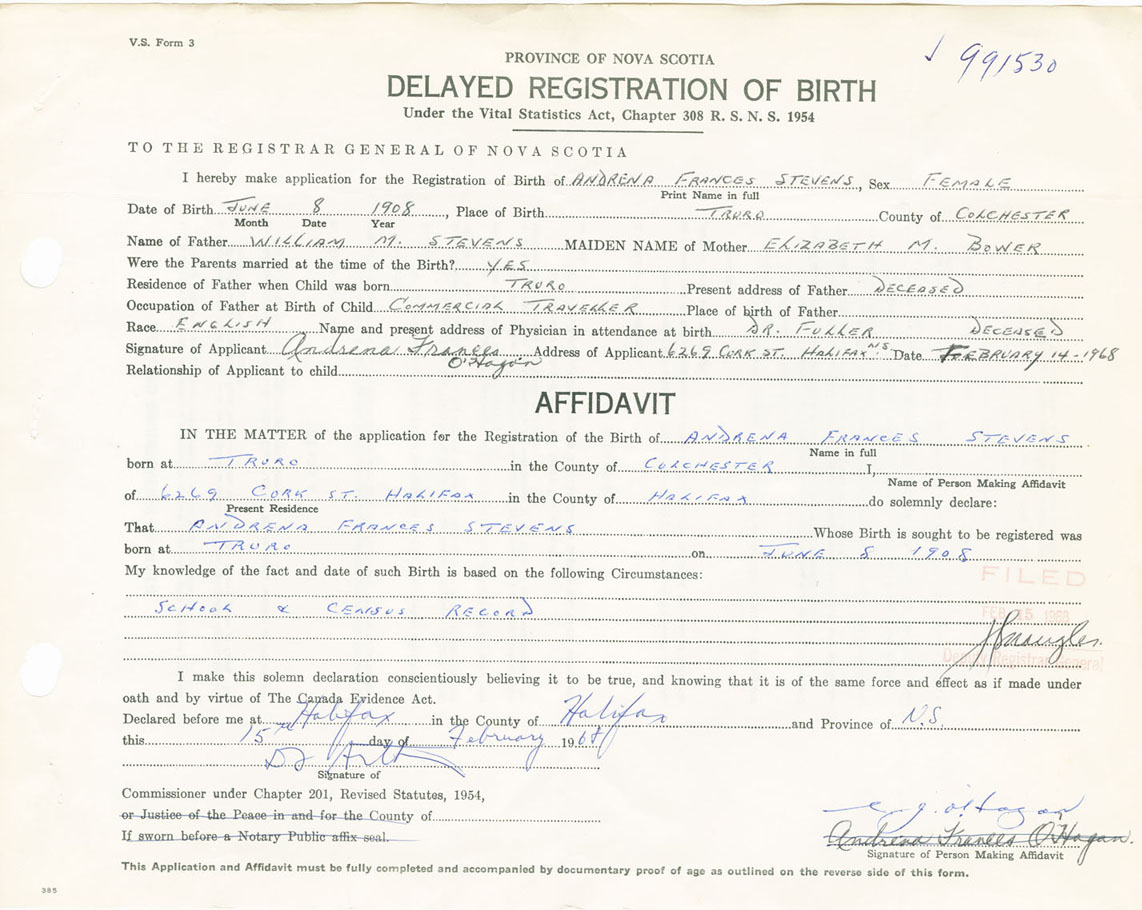 V.S. Form 3
991530
PROVINCE OF NOVA SCOTIA
DELAYED REGISTRATION OF BIRTH
Under the Vital Statistics Act, Chapter 308 R. S. N. S. 1954
TO THE REGISTRAR GENERAL OF NOVA SCOTIA
I hereby make application for the Registration of Birth of ANDRENA FRANCES STEVENS, Sex FEMALE
Print Name in full
Date of Birth JUNE 8 1908, Place of Birth TRURO County of COLCHESTER
Month Date Year
Name of Father WILLIAM M. STEVENS MAIDEN NAME of Mother ELIZABETH M. BOWER
Were the Parents married at the time of the Birth? YES
Residence of Father when Child was born TRURO Present address of Father DECEASED
Occupation of Father at Birth of Child COMMERCIAL TRAVELLER Place of birth of Father
Race ENGLISH Name and present address of Physician in attendance at birth DR. FULLER DECEASED
Signature of Applicant Andrena Frances O'Hagan Address of Applicant 6269 CORK ST. HALIFAX N.S. Date FEBRUARY 14-1968
Relationship of Applicant to child
AFFIDAVIT
IN THE MATTER of the application for the Registration of the Birth of ANDRENA FRANCES STEVENS
Name in full
born at TRURO in the County of COLCHESTER I
Name of Person Making Affidavit
of 6269 CORK ST. HALIFAX in the County of HALIFAX do solemnly declare:
Present Residence
That ANDRENA FRANCES STEVENS Whose Birth is sought to be registered was
born at TRURO on JUNE 8 1908
My knowledge of the fact and date of such Birth is based on the following Circumstances:
FILED
SCHOOL & CENSUS RECORD
FEB 15 1968
Deputy Registrar General
I make this solemn declaration conscientiously believing it to be true, and knowing that it is of the same force and effect as if made under
oath and by virtue of The Canada Evidence Act.
Declared before me at Halifax in the County of Halifax and Province of N.S.
this 15th day of February 1968
Signature of
Commissioner under Chapter 201, Revised Statutes, 1954,
or Justice of the Peace in and for the County of
If sworn before a Notary Public affix seal.
O'Hagan
Andrena Frances O'Hagan.
Signature of Person Making Affidavit
This Application and Affidavit must be fully completed and accompanied by documentary proof of age as outlined on the reverse side of this form.
385